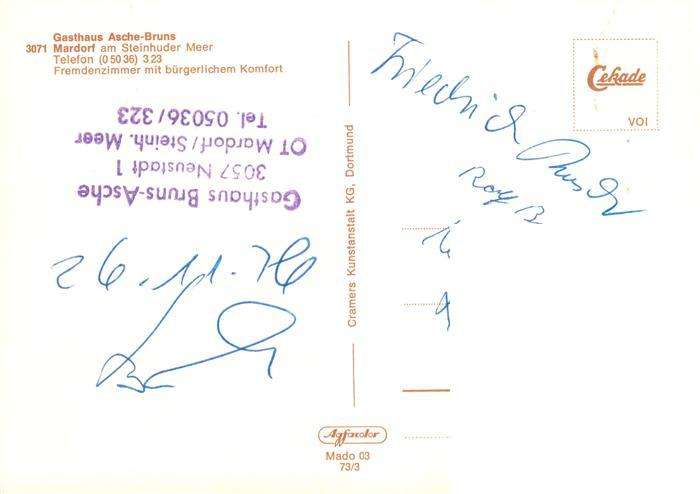 Gasthaus Asche-Bruns
3071 Mardorf am Steinhuder Meer
Telefon (05036) 323
Fremdenzimmer mit bürgerlichem Komfort
Gasthaus Bruns-Asche
3057 Neustadt 1
OT Mardorf/Steinh. Meer
Tel. 05036/323
26.11.76
Cramers Kunstanstalt KG, Dortmund
Friedrich
Rolf B
Cekade
VOI
Agfacolor
Mado 03
73/3